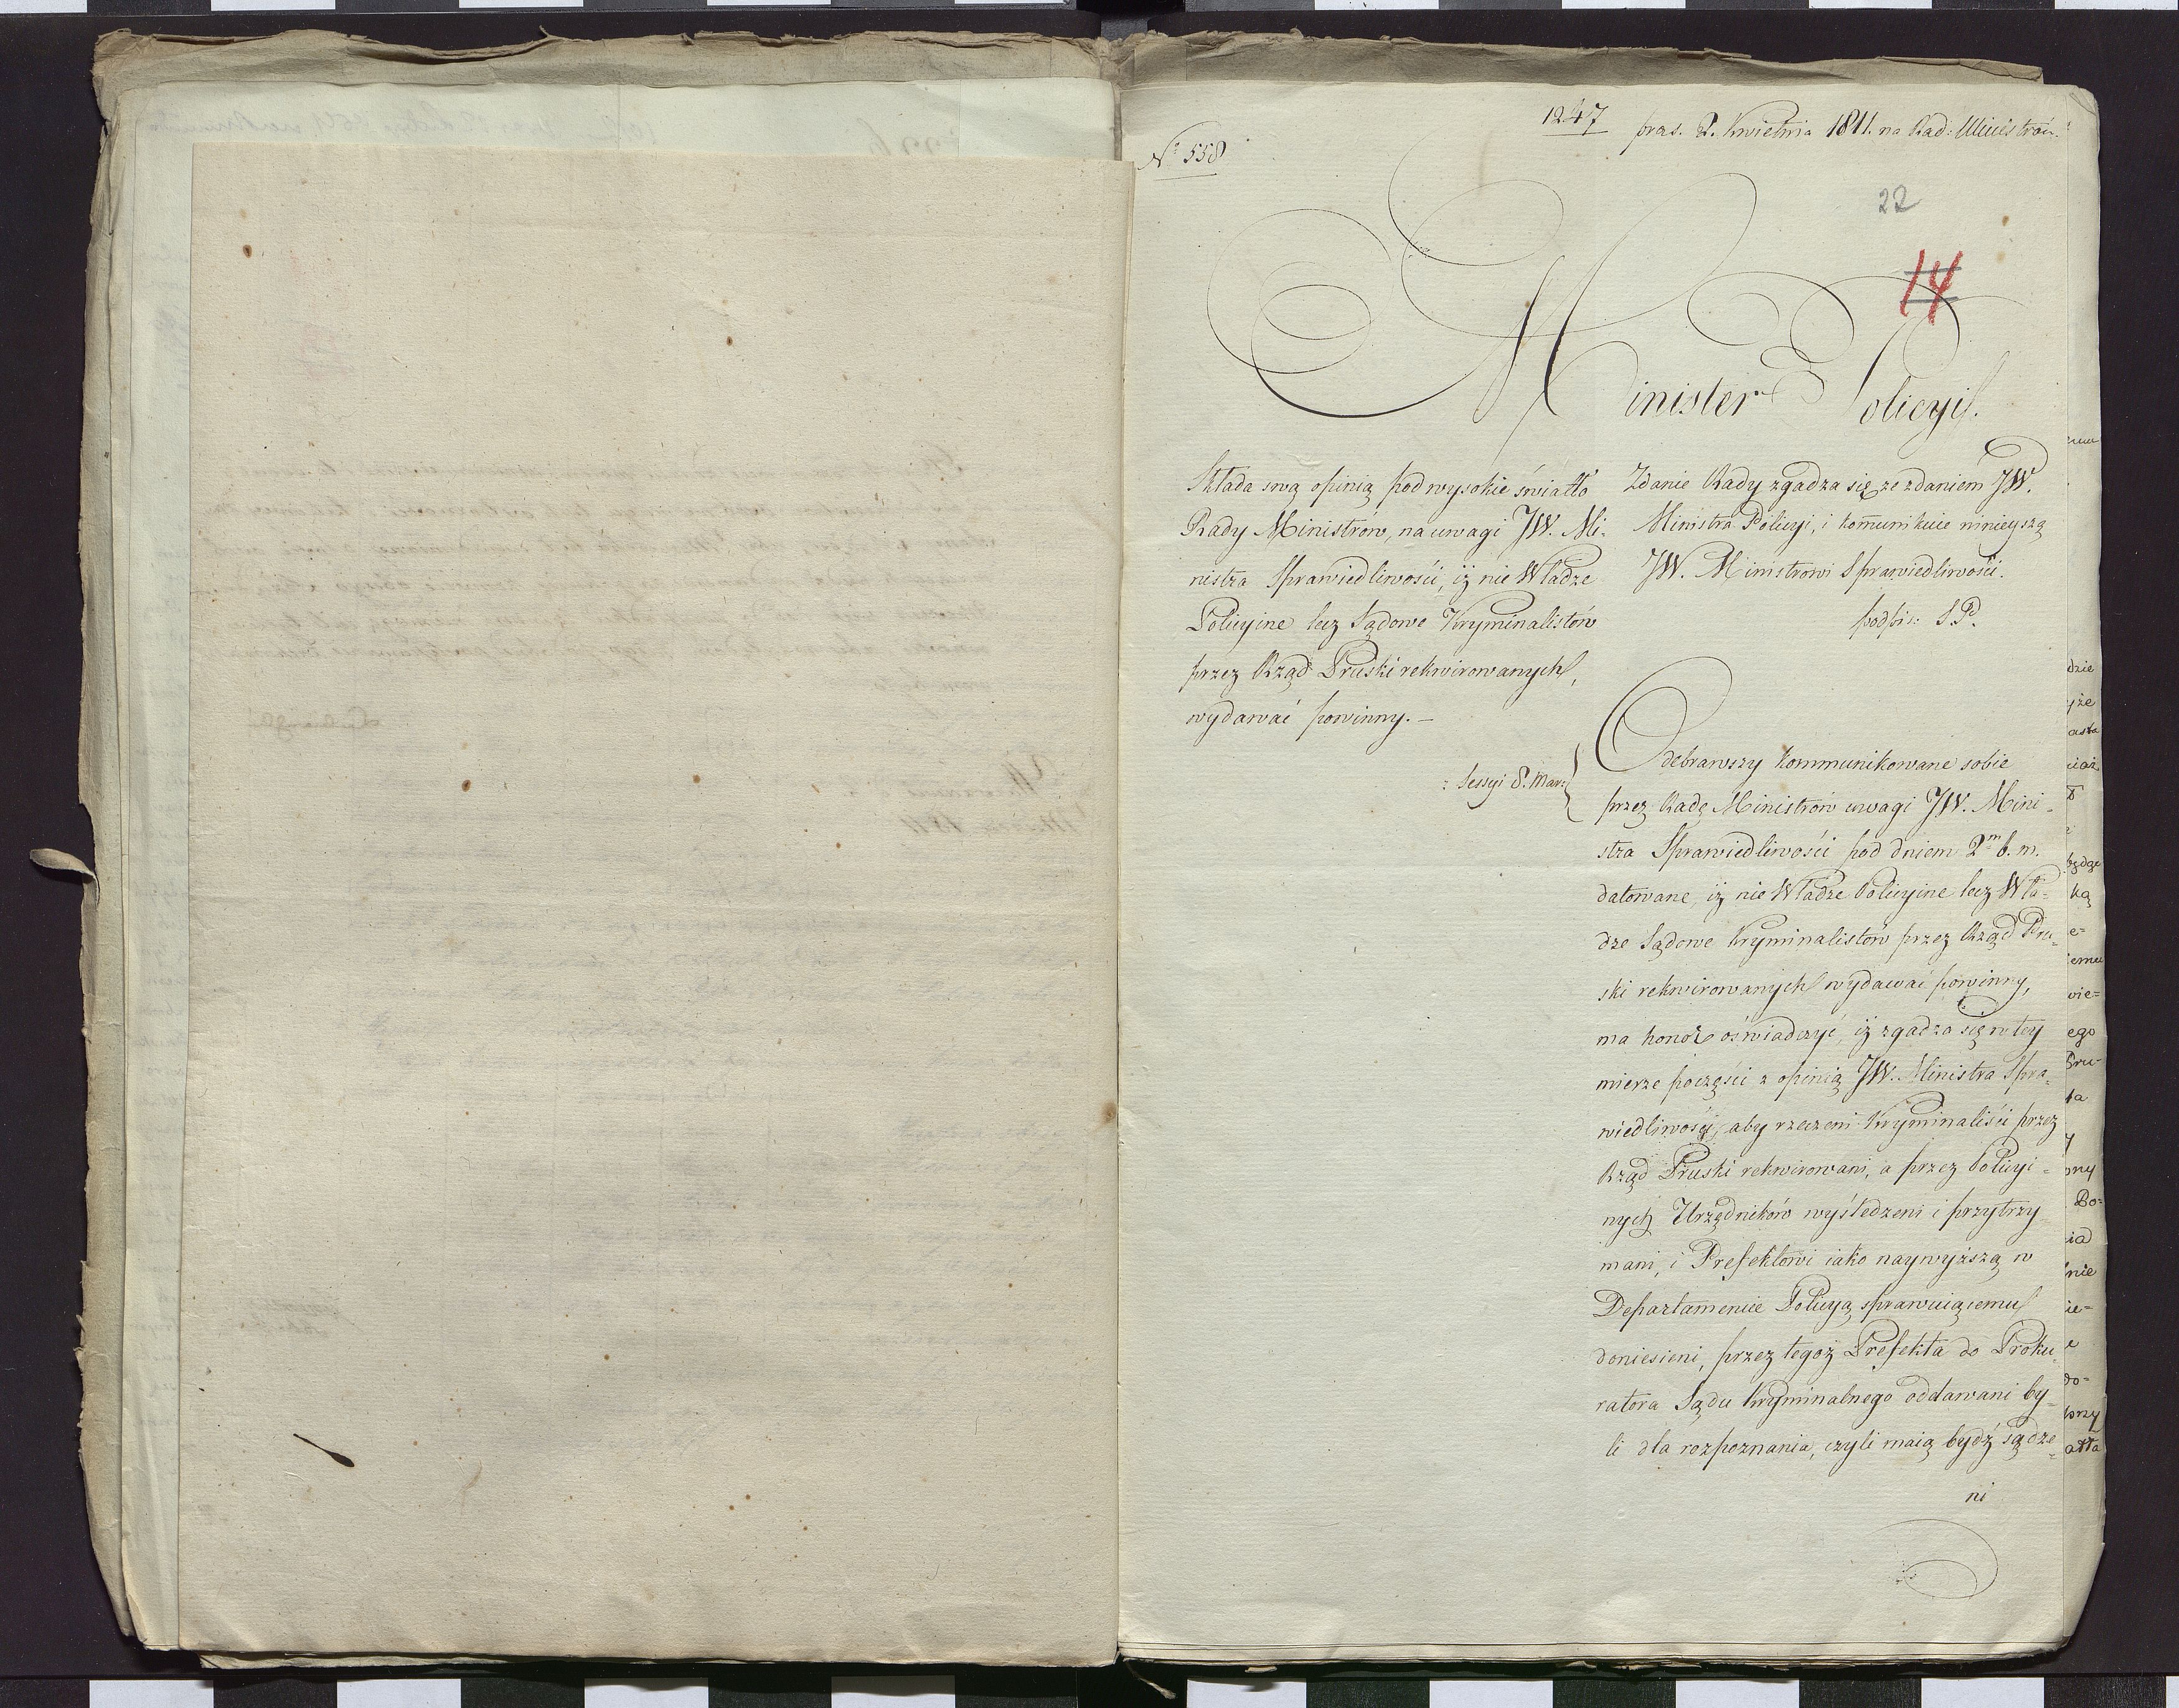 1247
pras. 2. Kwietnia 1811. na Rad: Ministrów
Nº 558
22
14
Minister Policyi.
Składa swą opinią pod wysokie światło
Rady Ministrów, na uwagi JW. Mi-
nistra Sprawiedliwości, iż nie Władze
Policyine lecz Sądowe Kryminalistów
przez Rząd Pruski rekwirowanych,
wydawać powinny. —
Zdanie Rady zgadza się ze zdaniem JW.
Ministra Policyi, i kom̄unikuie ninieyszą
JW. Ministrowi Sprawiedliwości.
podpis: S. P.
: Sessyi 8. Mar:
Odebrawszy kommunikowane sobie
przez Radę Ministrów uwagi JW. Mini-
stra Sprawiedliwości pod dniem 2m b. m.
datowane, iż nie Władze Policyine lecz Wła-
dze Sądowe kryminalistów przez Rząd Pru-
ski rekwirowanych wydawać powinny,
ma honor oświadczyć, iż zgadza się w tey
mierze poczęści z opinią JW. Ministra Spra-
wiedliwości, aby rzeczeni Kryminaliści przez
Rząd Pruski rekwirowani, a przez Policyi-
nych Urzędników wyśledzeni i przytrzy-
mani, i Prefektowi iako naywyższą w
Departamencie Policyą sprawuiącemu
doniesieni, przez tegoż Prefekta do Proku-
ratora Sądu Kryminalnego oddawani by-
li dla rozpoznania, czyli maią bydź sądze-
ni